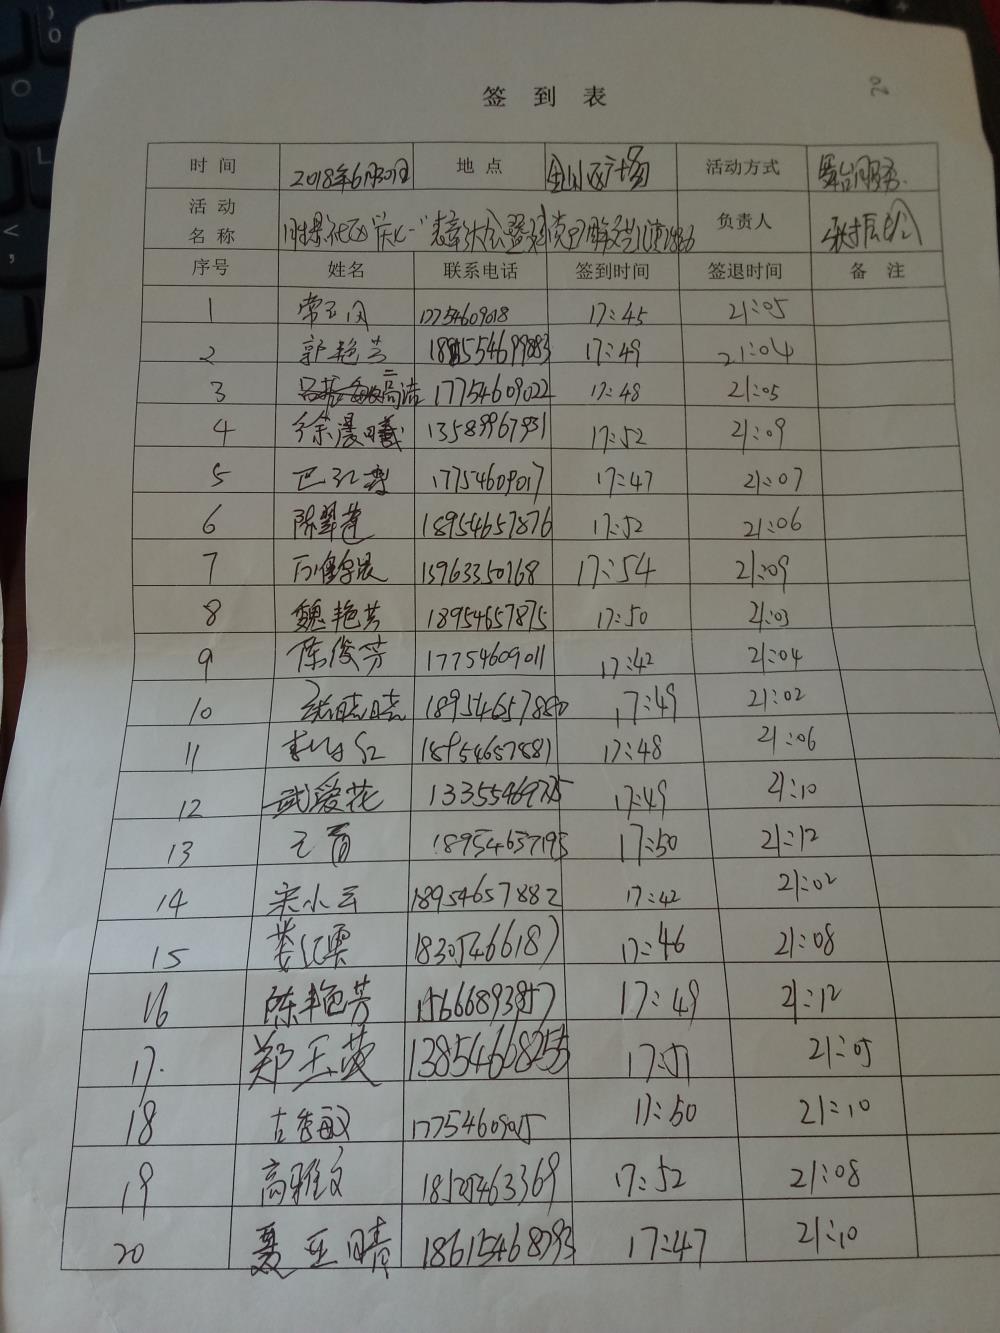 20
签 到 表
时 间 2018年6月30日 地 点 广场 活动方式 舞台服务
活 动
名 称 负责人
序号 姓名 联系电话 签到时间 签退时间 备 注
1 常玉凤 17754609018 17:45 21:05
2 郭艳芳 17:49 21:04
3 高洁 17754609022 17:48 21:05
4 徐晨曦 13589967931 17:52 21:09
5 巴 17754609017 17:47 21:07
6 陈翠莲 18954657876 17:52 21:06
7 17:54 21:09
8 魏艳芳 18954657875 17:50 21:03
9 陈俊芳 17754609011 17:42 21:04
10 晓晓 18954657880 17:49 21:02
11 李 18954657881 17:48 21:06
12 武爱花 17:49 21:10
13 18954657195 17:50 21:12
14 宋小云 18954657882 17:42 21:02
15 18305466187 17:46 21:08
16 陈艳芳 15666893857 17:49 21:12
17. 郑玉英 13854668255 17:51 21:05
18 古秀敏 17754609015 17:50 21:10
19 高雅文 17:52 21:08
20 夏亚晴 18615468793 17:47 21:10